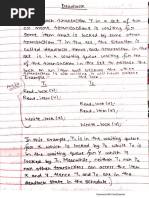 Deadlock
Deadlock
transaction T in a set of two
or more transactions is waiting for
some item that is locked by some other
transaction T' in the set, the situation is
called deadlock. Hence, each transaction in
the set is in a waiting queue, waiting
for one of the other
Example
T1 T2
Read_lock (Y).
Read_item (Y).
Read_lock (X).
Read_item (X).
Write_lock (X).
Write_lock (Y).
In this example, T1 is in the waiting queue
for X which is locked by T2. while T2 is
in the waiting queue for Y which is
locked by T1. Meanwhile, neither T1 nor T2
nor other transaction can access the item
X and Y. Hence T1 and T2 are in the
deadlock state in the schedule.